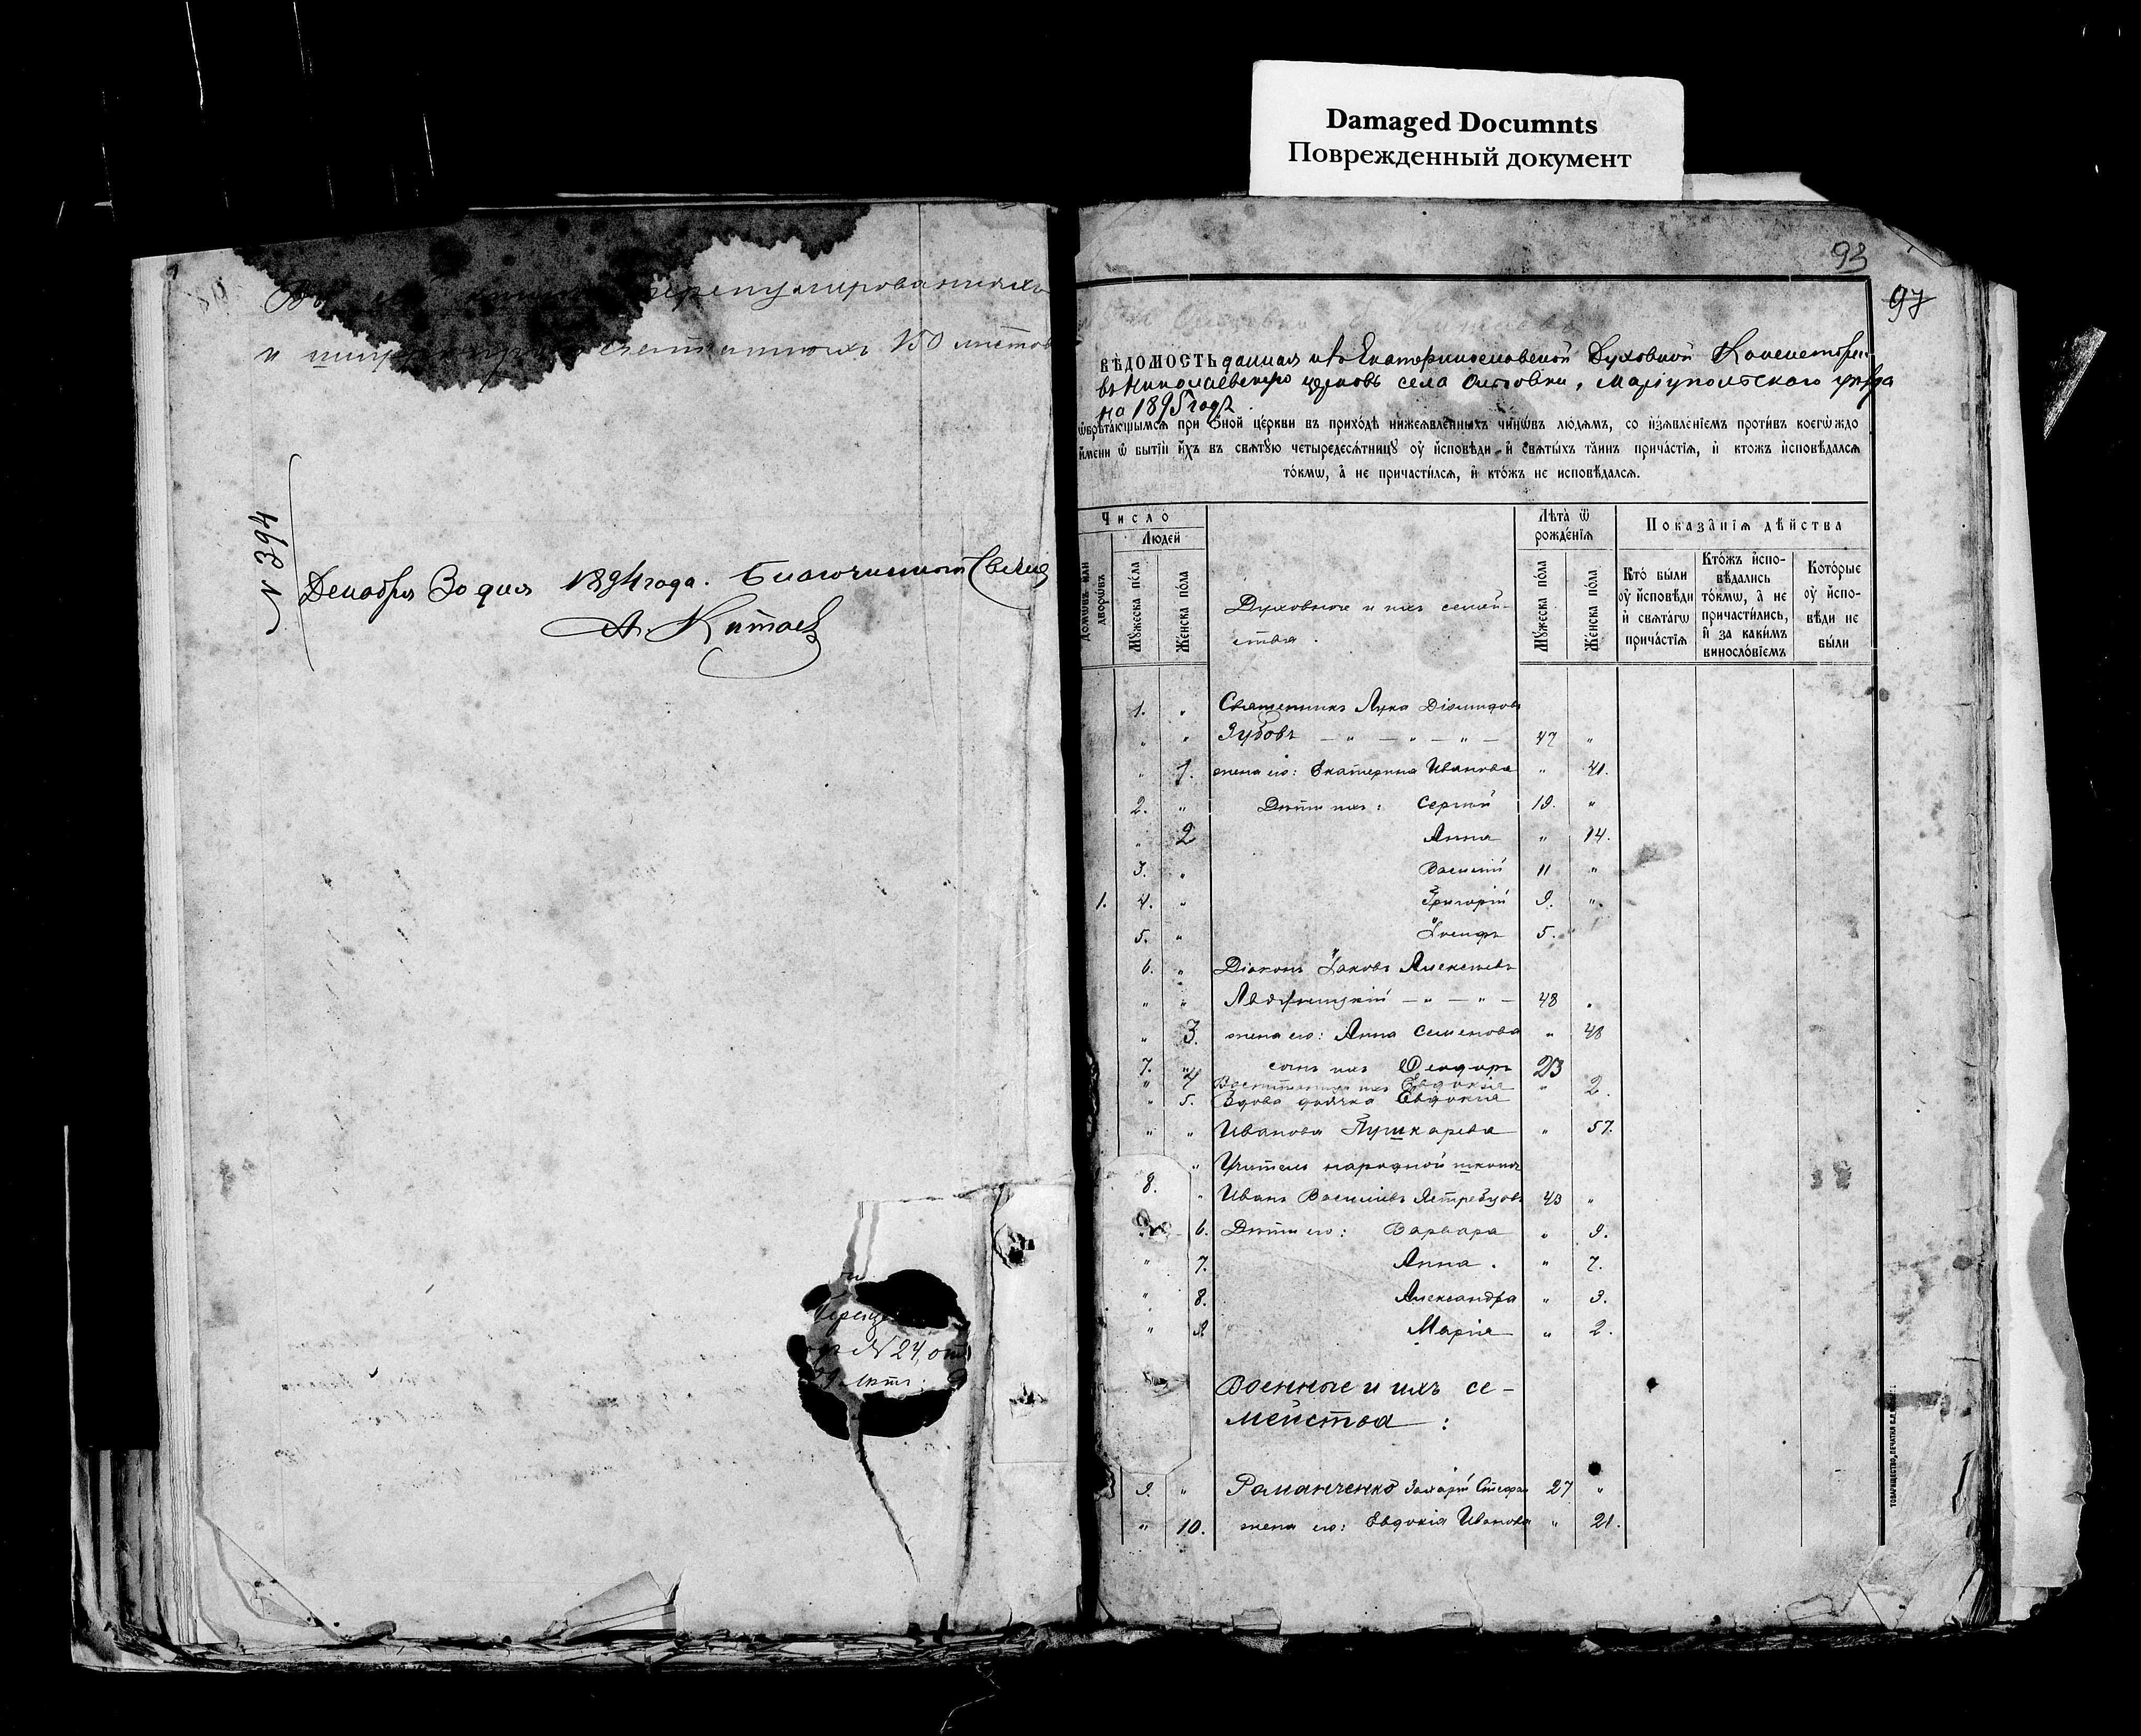 Damaged Documnts
Поврежденный документ
перенумерованныхъ
и 150 листовъ
N 394
Декабря 30 дня 1894 года. Благочинный Священ
А. Китаев
N 24, от
93
97
ВѢДОМОСТЬ данная изъ Екатеринославской Духовной Консисторіи
въ Николаевскую церковь села Мариупольского уѣзда
на 1895 годъ.
ѡбрѣта́ющымсѧ при о́ной це́ркви въ прихо́дѣ нижеѧвле́нныхъ чинѡ́въ лю́дѧмъ, со и҆з̾ѧвле́нїемъ проти́въ коегѡ́ждо
и҆́мени ѿ бытїи̑ и҆́хъ въ свѧту́ю четыредесѧ́тницꙋ ᲂу҆ и҆́сповѣди и҆ свѧты́хъ та̑инъ прича́стїѧ, и҆ ктожъ и҆сповѣ́далсѧ
то́кмѡ, а҆ не причасти́лсѧ, и҆ кто́жъ не исповѣ́далсѧ.
Число́
Людей
Домѡвъ или дворѡвъ
Мꙋ́жеска по́ла
Же́нска по́ла
Духовные и ихъ семей-
ства.
Лѣта̀ ѿ рожде́нїѧ
Мꙋ́жеска по́ла
Же́нска по́ла
Показа̑нїѧ дѣ́йства
Кто̀ бы́ли ᲂу҆ и҆́сповѣди и҆ свѧта́гѡ прича́стїѧ
Кто́жъ и҆спо-вѣ́дались то́кмѡ, а҆ не причасти́лись, и҆ за каки́мъ виносло́вїемъ
Кото́рые ᲂу҆ и҆́спо-вѣди не бы́ли
1. " Священникъ Лука Діомидовъ
" " Зубовъ — " — " — " — 47 "
" 1. жена его: Екатерина Иванова " 41.
2. " Дѣти ихъ: Сергій 19. "
" 2 Анна " 14.
3. " Василій 11 "
1. 4. " Григорій 9. "
5. " Іосифъ 5.
6. " Діаконъ Іаковъ Алексѣевъ
" " — " — " — 48 "
" 3. жена его: Анна Семенова " 48
7. " сынъ ихъ Ѳеодоръ 23
" 4 Воспитанница ихъ Евдокія " 2.
" 5. Вдова дьячка Евдокія
" " Иванова Пушкарева " 57.
" Учитель народной школы
8. " Иванъ Васильевъ Ястребцовъ 43 "
6. Дѣти его: Варвара " 9.
" 7. Анна. " 7.
" 8. Александра " 3.
" 9 Марія " 2.
Военные и ихъ се-
мейства:
9. " Романченко Захарій Стефан 27 "
" 10. жена его: Евдокія Иванова " 21.